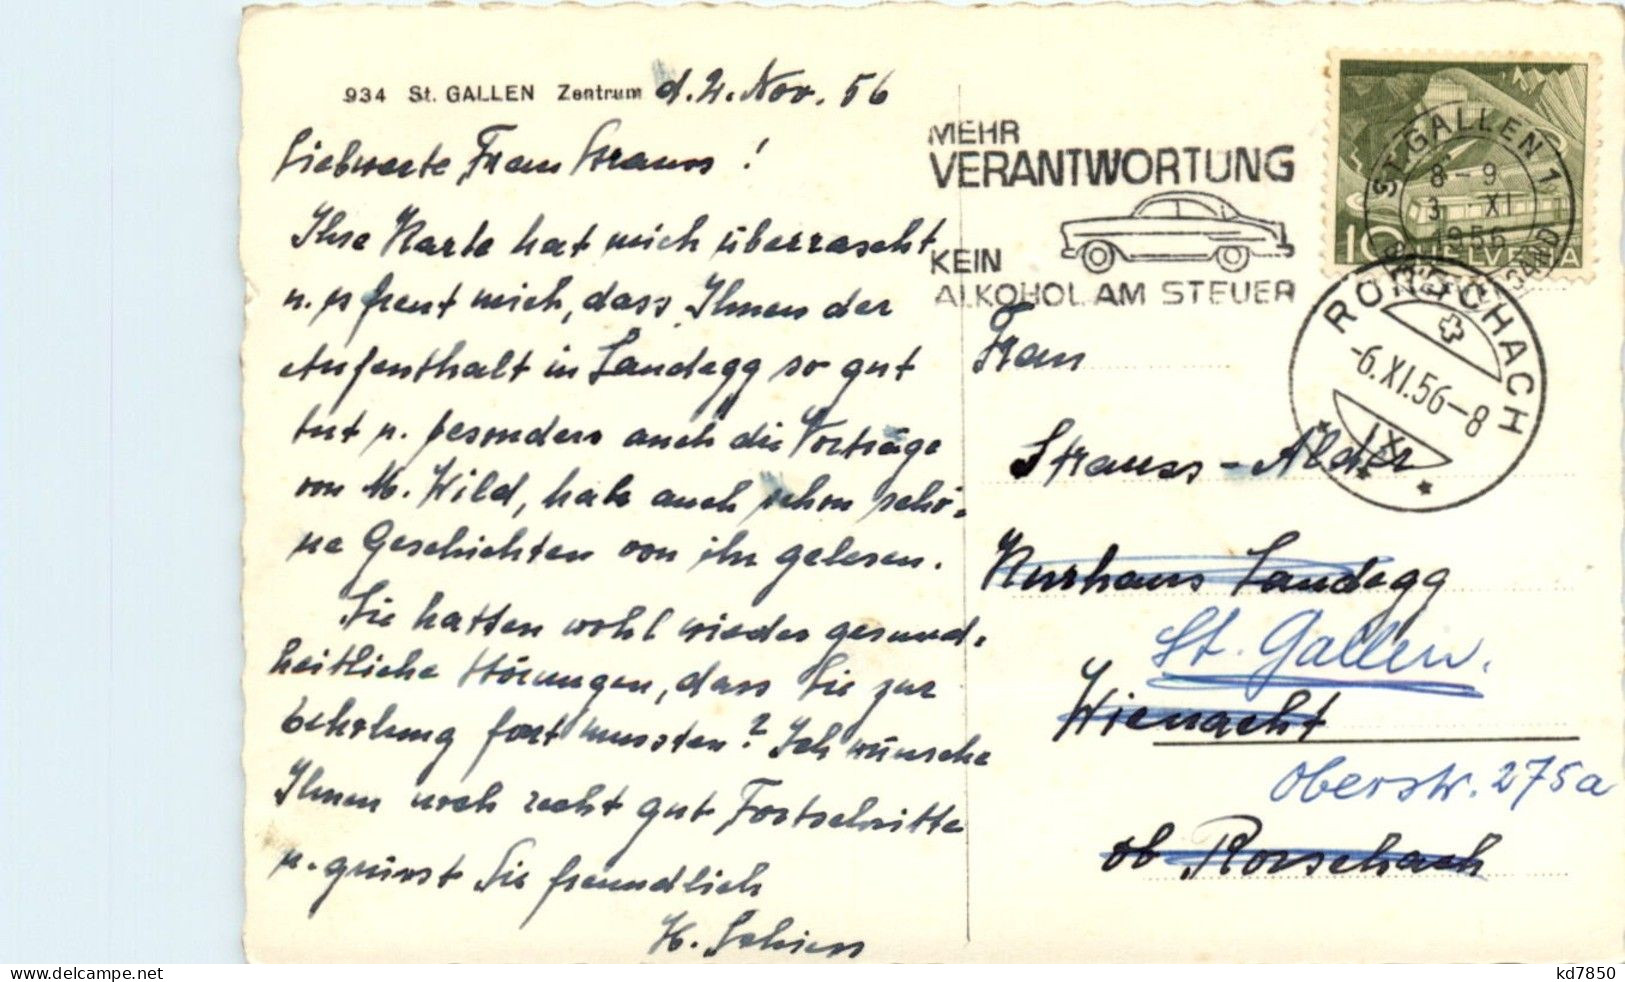 934 St. GALLEN Zentrum d. 2. Nov. 56
Liebwerte Frau Strauss!
Ihre Karte hat mich überrascht
u. es freut mich, dass Ihnen der
Aufenthalt in Landegg so gut
tut u. besonders auch die Vorträge
von M. Wild, habe auch schon schö-
ne Geschichten von ihr gelesen.
Sie hatten wohl wieder gesund-
heitliche Störungen, dass Sie zur
Erholung fort mussten? Ich wünsche
Ihnen noch recht gut Fortschritte
u. grüsst Sie freundlich
H. Schiess
MEHR
VERANTWORTUNG
KEIN
ALKOHOL AM STEUER
ST. GALLEN 1
8-9
3. XI
1956
10 HELVETIA
RORSCHACH
-6.XI.56-8
Frau
Strauss-Alder
Kurhaus Landegg
St. Gallen.
Wienacht
Oberstr. 275a
ob Rorschach
delcampe.net
kd7850